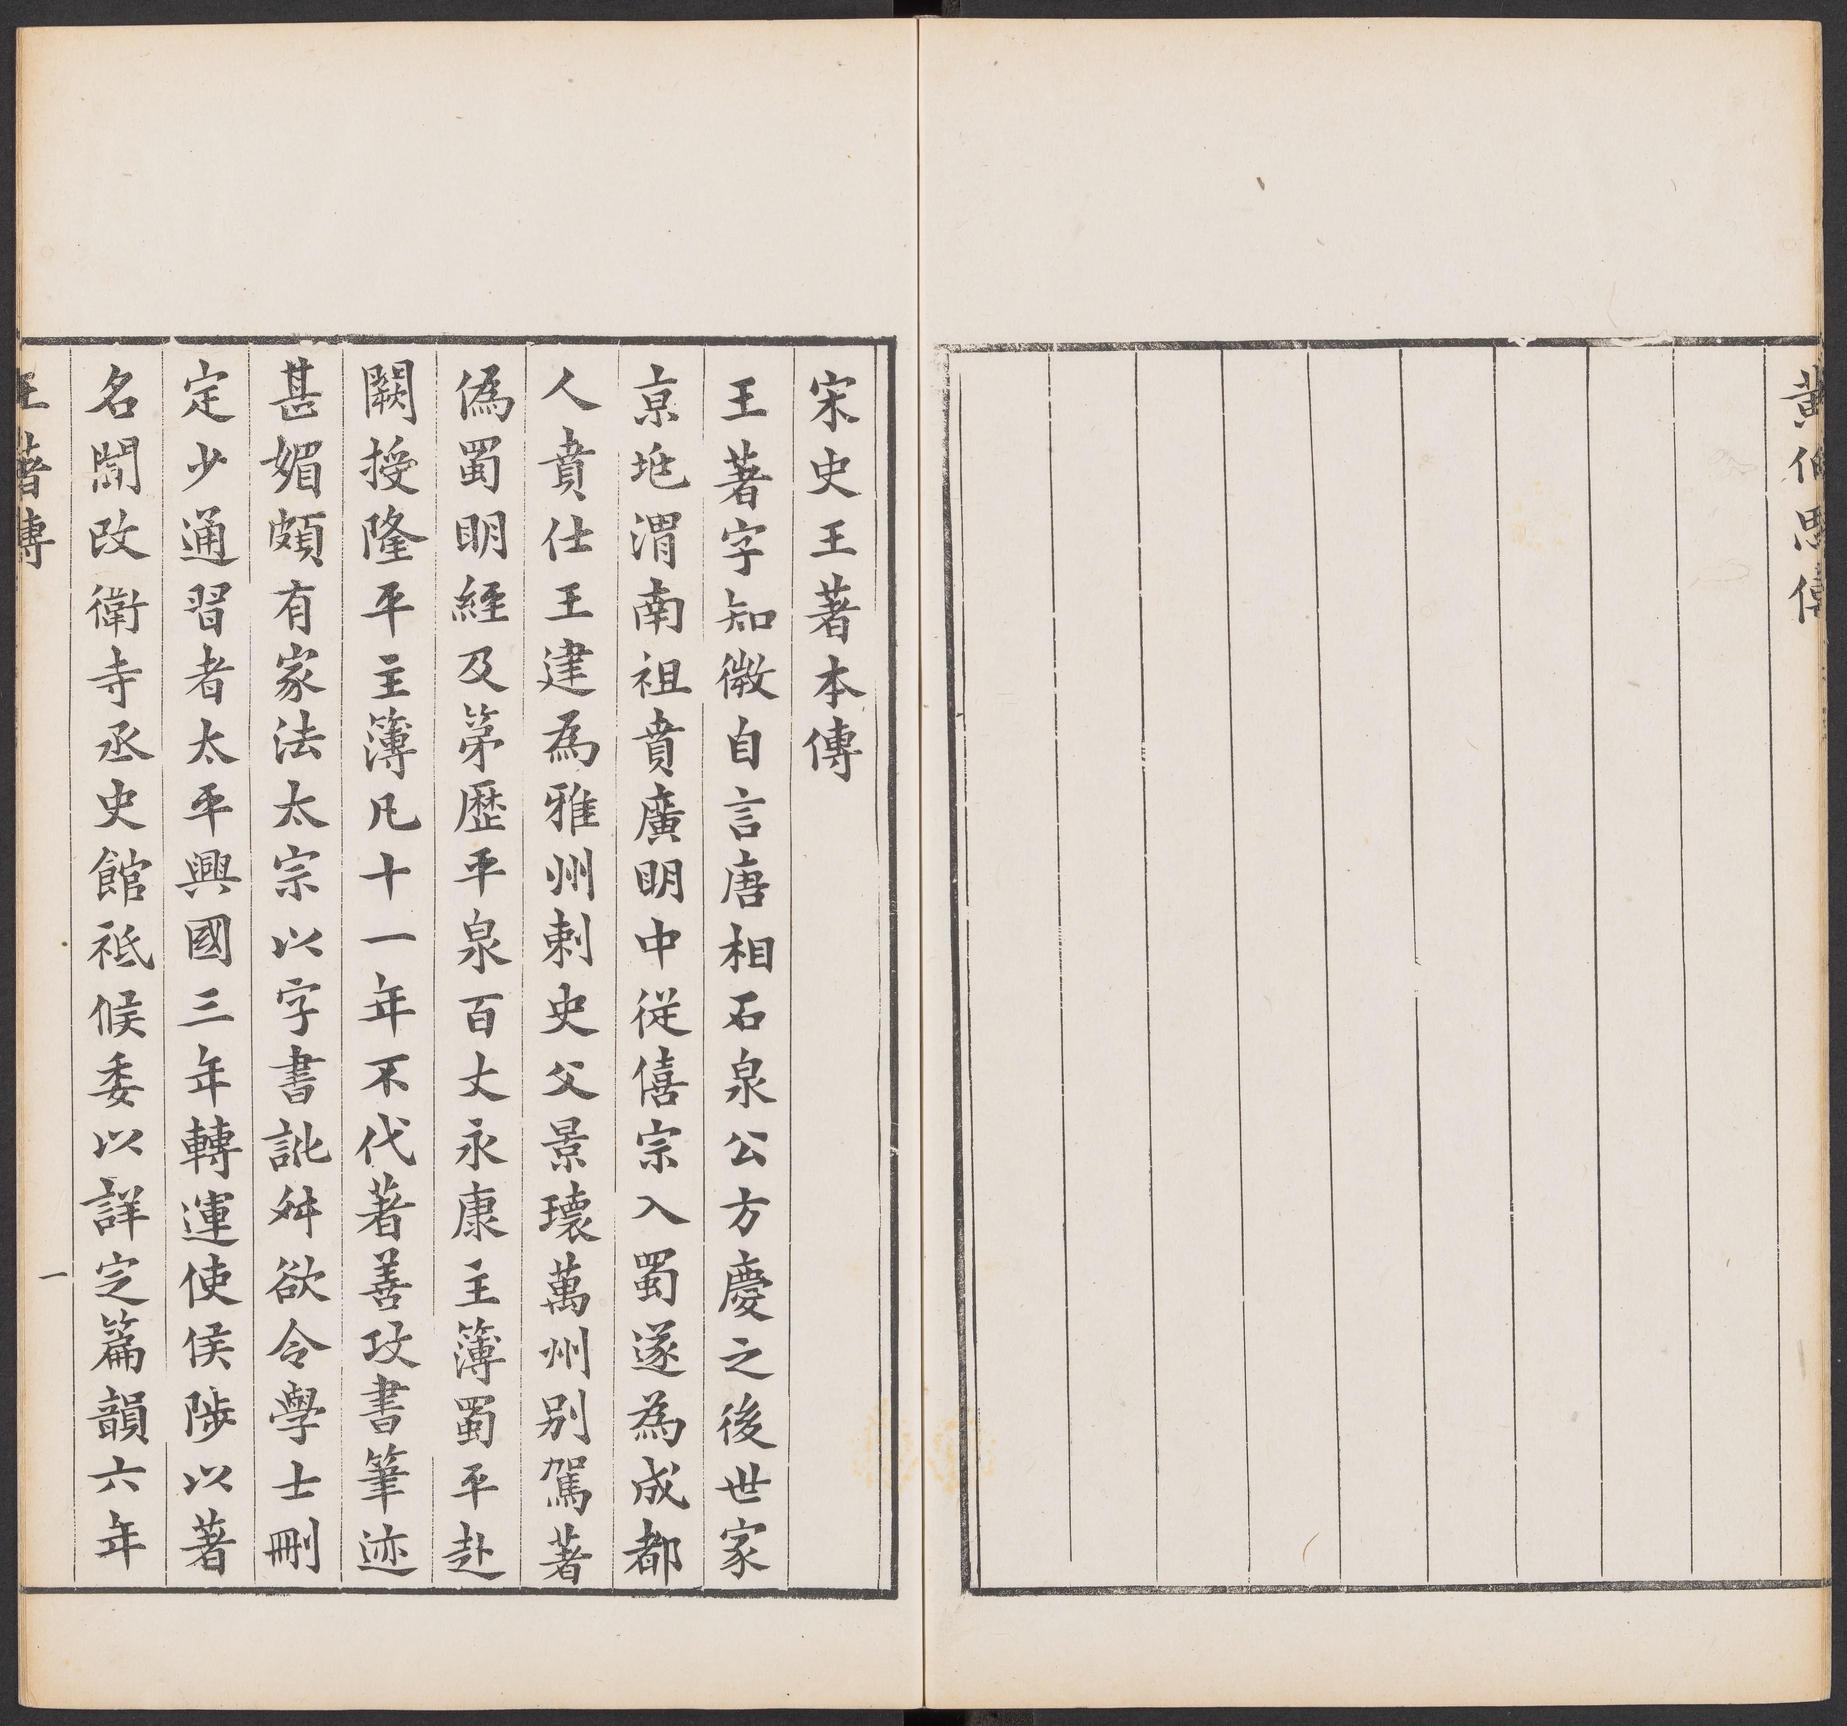 黄伯思傳
宋史王著本傳
王著字知微自言唐相石泉公方慶之後世家
京兆渭南祖賁廣明中從僖宗入蜀遂為成都
人賁仕王建為雅州刺史父景瓌萬州别駕著
偽蜀明經及第歷平泉百丈永康主簿蜀平赴
闕授隆平主簿凡十一年不代著善攻書筆迹
甚媚頗有家法太宗以字書訛舛欲令學士刪
定少通習者太平興國三年轉運使侯陟以著
名聞改衛寺丞史館祗候委以詳定篇韻六年
王著傳
一